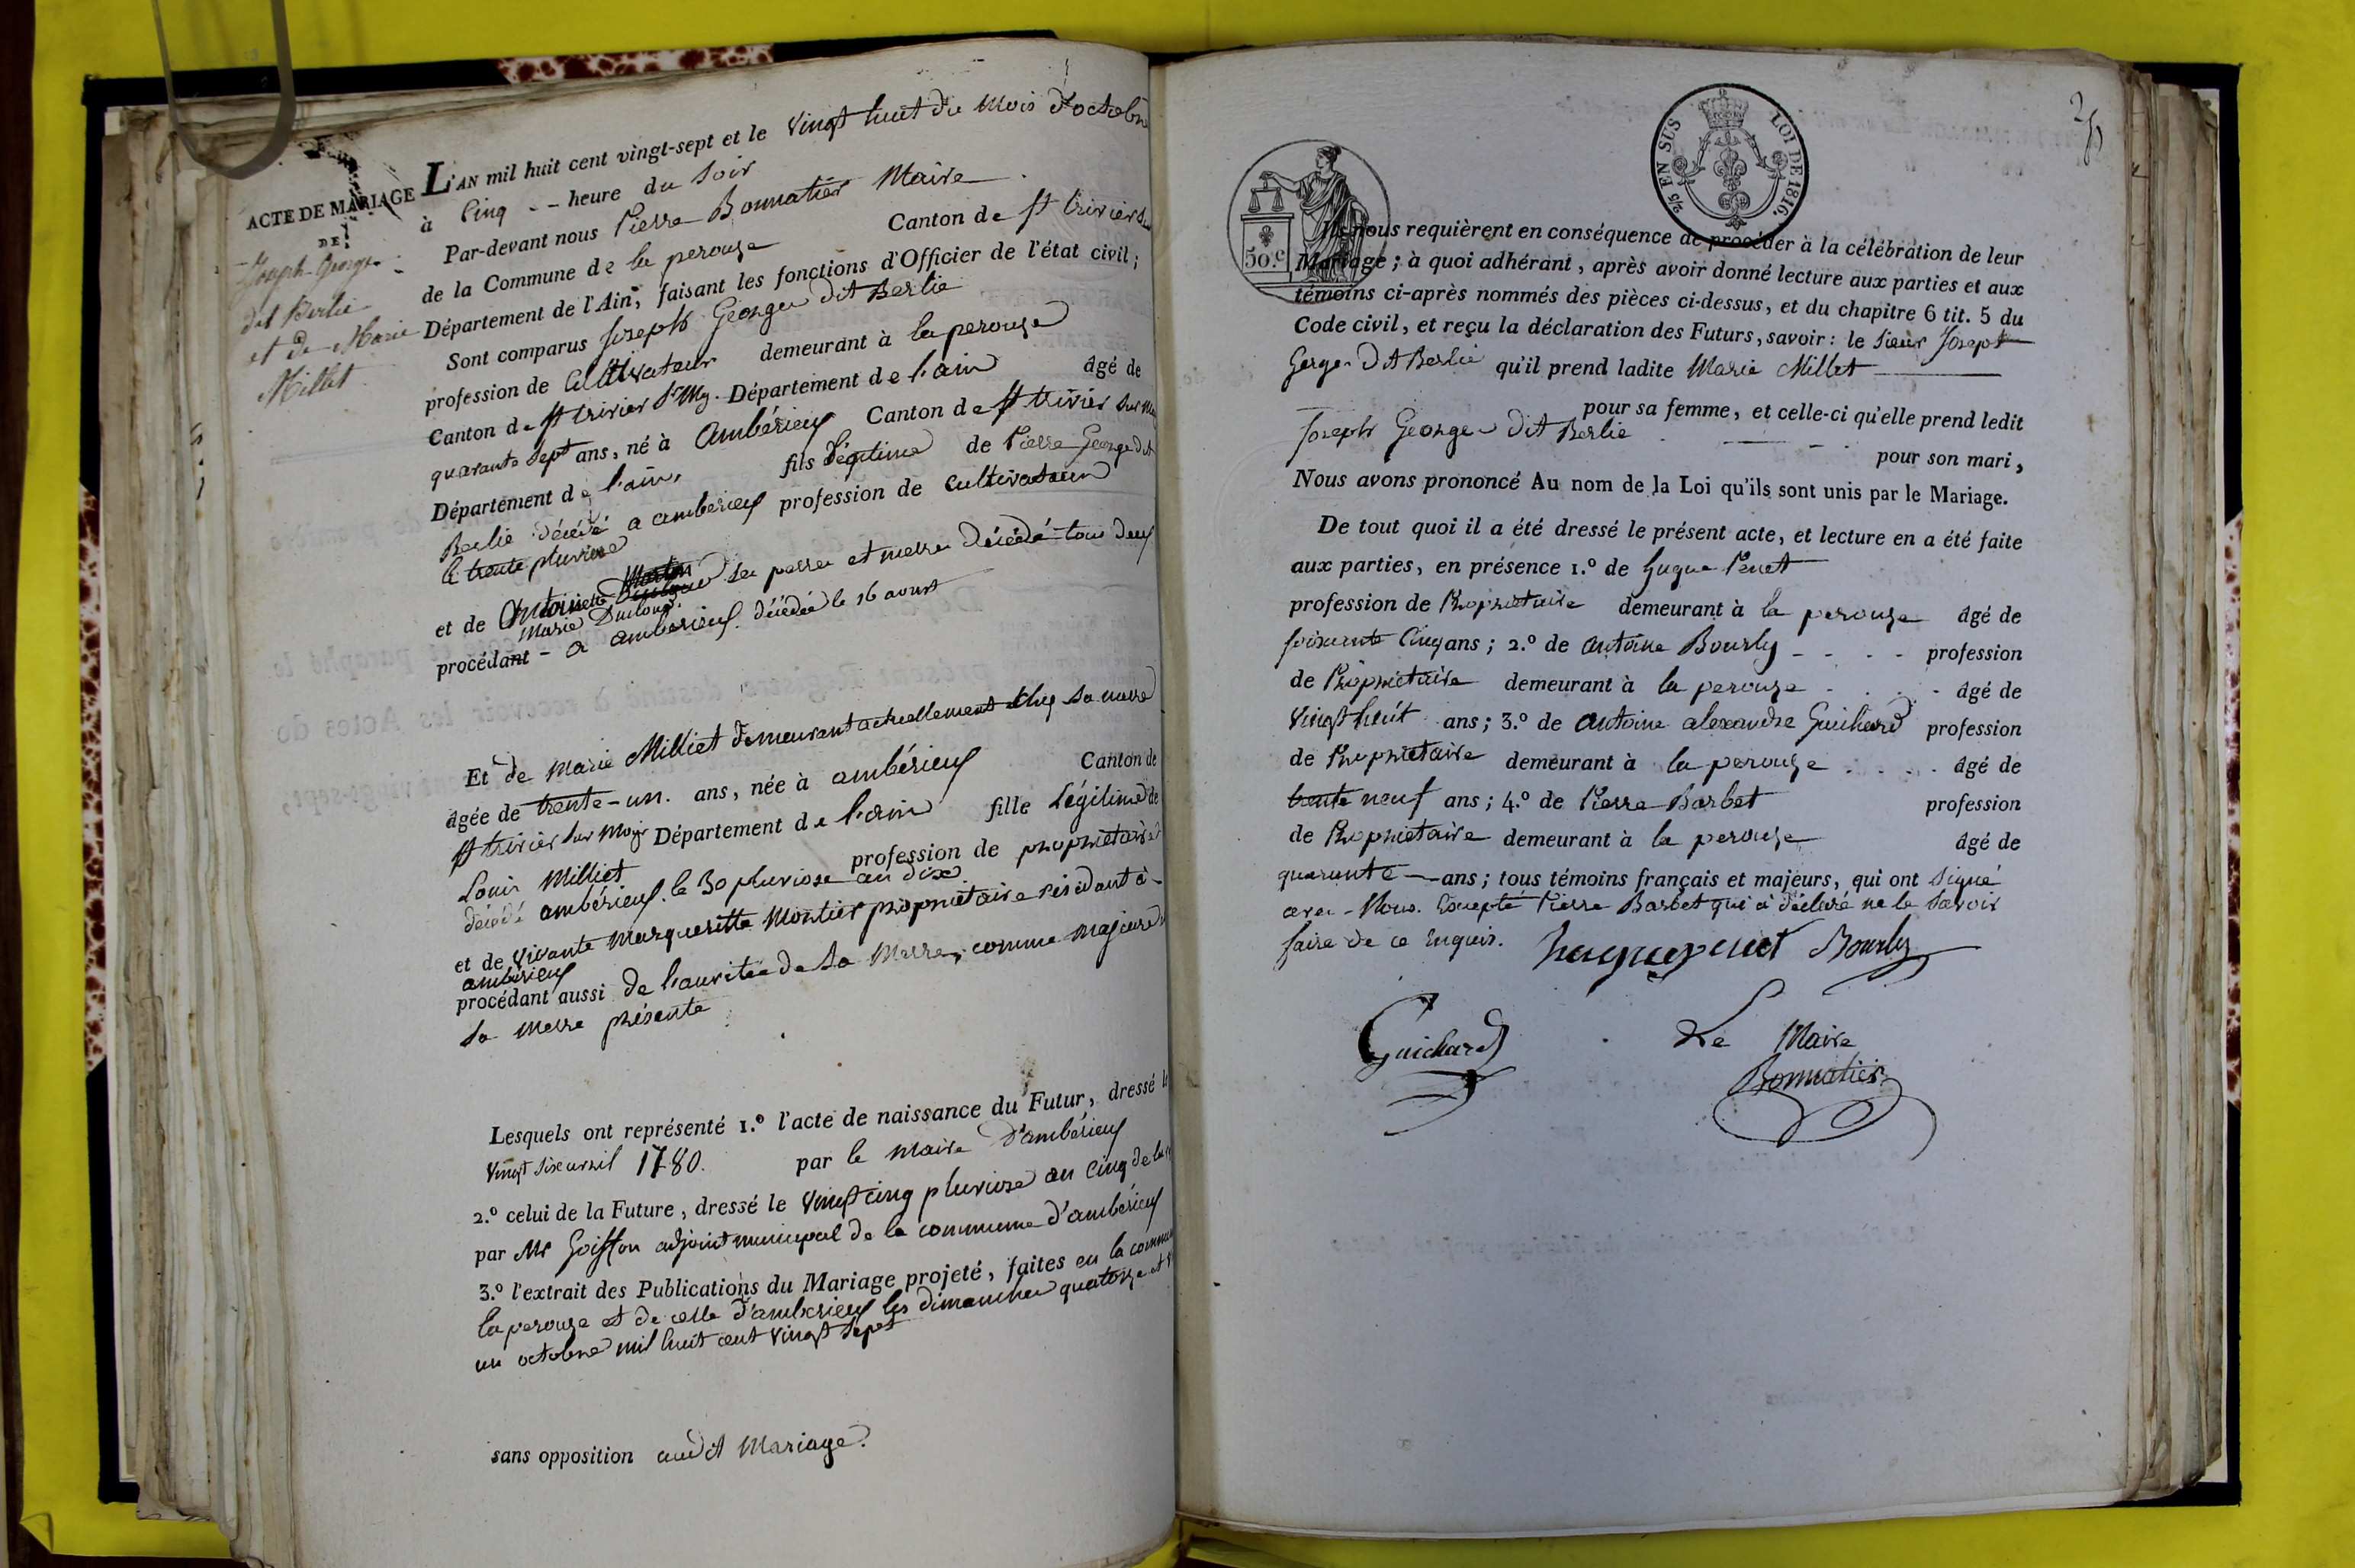 ACTE DE MARIAGE
DE
Joseph George
dit Berlie
et de Marie
Millet
L'AN mil huit cent vingt-sept et le vingt huit du mois d'octobre
à Cinq - - heure du soir
Par-devant nous Pierre Bonnatier Maire
de la Commune de la perouze Canton de st trivier
Département de l'Ain, faisant les fonctions d'Officier de l'état civil;
Sont comparus Joseph George dit Berlie
profession de Cultivateur demeurant à la perouze
Canton de st trivier s.r Mog. Département de l'ain âgé de
quarante sept ans, né à Ambérieux Canton de st trivier sur
Département de l'ain, fils légitime de Pierre George dit
Berlie décédé a amberieux profession de cultivateur
le trente pluviose
et de Marie Dulong ses perre et merre décédé tous deux
procédant - a amberieux. décédée le 16 avout
Et de Marie Milliet demeurant actuellement chez sa merre
âgée de trente-un. ans, née à ambérieux Canton de
st trivier sur Mog Département de l'ain fille Légitime de
Louis Milliet profession de proprietaire
décédé ambérieux. le 30 pluviose an dix.
et de vivante Margueritte Montier propriétaire résidant à
ambérieux
procédant aussi de l'auritée de sa Merre, comme majeure
sa merre présente
Lesquels ont représenté 1.º l'acte de naissance du Futur, dressé le
vingt six avril 1780. par le maire d'ambérieux
2.º celui de la Future, dressé le vingt cinq pluviose an cinq de la
par Mr Goiffon adjoint municipal de la commune d'ambérieux
3.º l'extrait des Publications du Mariage projeté, faites en la commune
la perouze et de celle d'amberieux les dimanches quatorze et
un octobre mil huit cent vingt sept
sans opposition audit Mariage.
2/5 EN SUS LOI DE 1816.
50.c
Ils nous requièrent en conséquence de procéder à la célébration de leur
Mariage; à quoi adhérant, après avoir donné lecture aux parties et aux
témoins ci-après nommés des pièces ci-dessus, et du chapitre 6 tit. 5 du
Code civil, et reçu la déclaration des Futurs, savoir: le sieur Joseph
Gerge dit Berlie qu'il prend ladite Marie Millet
pour sa femme, et celle-ci qu'elle prend ledit
Joseph George dit Berlie
pour son mari,
Nous avons prononcé Au nom de la Loi qu'ils sont unis par le Mariage.
De tout quoi il a été dressé le présent acte, et lecture en a été faite
aux parties, en présence 1.º de hugue Penet
profession de Propriétaire demeurant à la perouze âgé de
soixante Cinq ans; 2.º de antoine Bourly - - - - profession
de Propriétaire demeurant à la perouze . . . . âgé de
vingt huit ans; 3.º de antoine alexandre Guichard profession
de Propriétaire demeurant à la perouze . . . . âgé de
trente neuf ans; 4.º de Pierre Barbet profession
de Propriétaire demeurant à la perouze âgé de
quarante ans; tous témoins français et majeurs, qui ont signé
avec Nous. Excepté Pierre Barbet qui a déclaré ne le savoir
faire de ce enquis. hugue penet Bourly
Guichard
Le Maire
Bonnatier